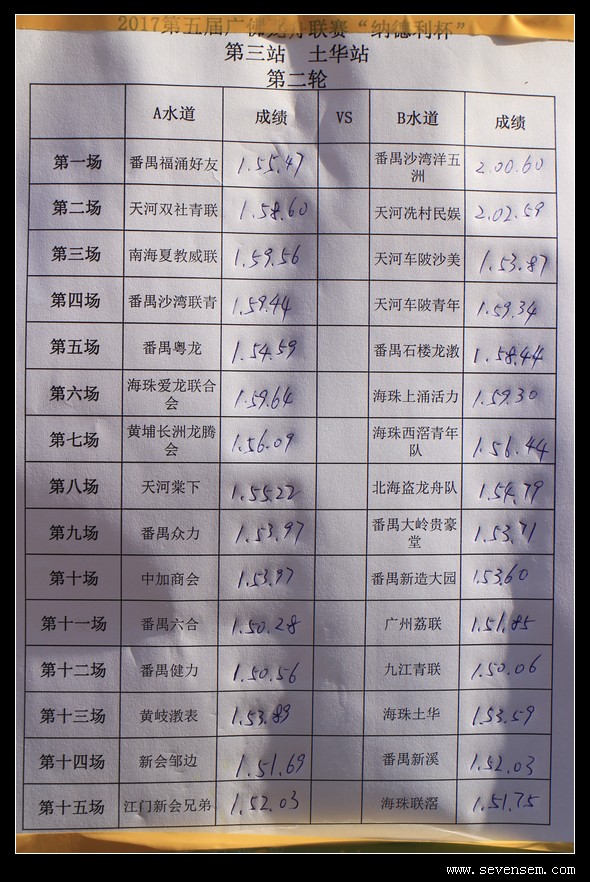 2017第五届广佛龙舟联赛“纳德利杯”
第三站 土华站
第二轮
A水道 成绩 VS B水道 成绩
第一场 番禺福涌好友 1.55.47 番禺沙湾洋五洲 2.00.60
第二场 天河双社青联 1.58.60 天河冼村民娱 2.02.59
第三场 南海夏教威联 1.59.56 天河车陂沙美 1.53.87
第四场 番禺沙湾联青 1.59.44 天河车陂青年 1.59.34
第五场 番禺粤龙 1.54.59 番禺石楼龙漖 1.58.44
第六场 海珠爱龙联合会 1.59.64 海珠上涌活力 1.59.30
第七场 黄埔长洲龙腾会 1.56.09 海珠西滘青年队 1.56.44
第八场 天河棠下 1.55.22 北海盗龙舟队 1.54.79
第九场 番禺众力 1.53.97 番禺大岭贵豪堂 1.53.71
第十场 中加商会 1.53.97 番禺新造大园 1.53.60
第十一场 番禺六合 1.50.28 广州荔联 1.51.85
第十二场 番禺健力 1.50.56 九江青联 1.50.06
第十三场 黄岐漖表 1.53.89 海珠土华 1.53.59
第十四场 新会邹边 1.51.69 番禺新溪 1.52.03
第十五场 江门新会兄弟 1.52.03 海珠联滘 1.51.75
www.sevensem.com